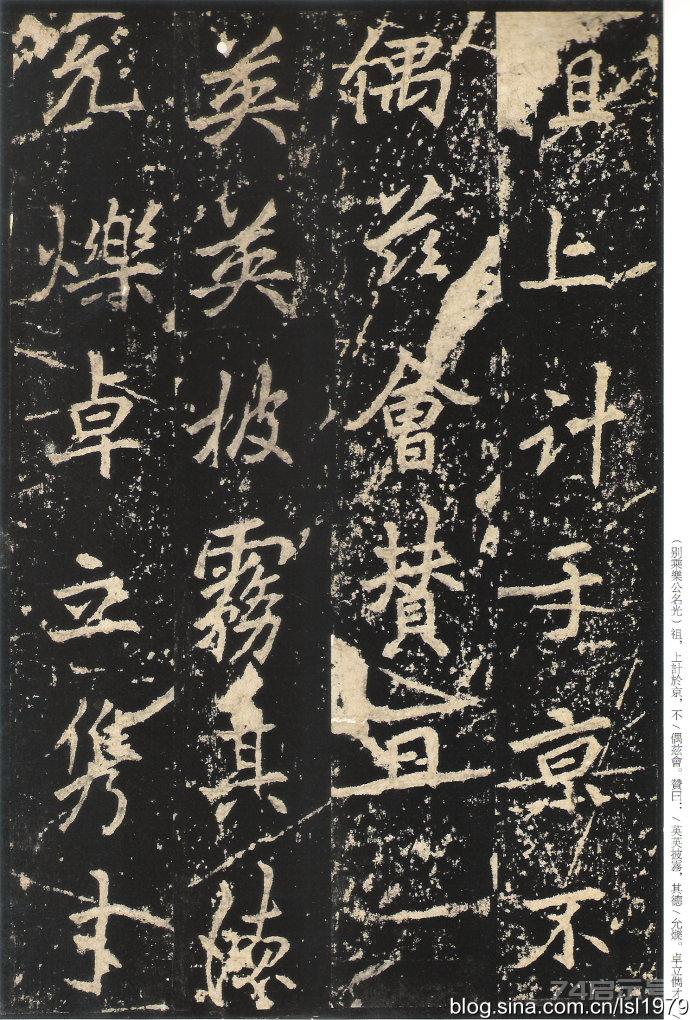 且上計于京不
偶茲會賛曰
英英披霧其德
允爍卓立雋才
（别乘樂公名光）祖，上計於京，不／偶兹會。贊曰：／英英披霧，其德／允爍。卓立儁才／
74启示号
blog.sina.com.cn/lsl1979